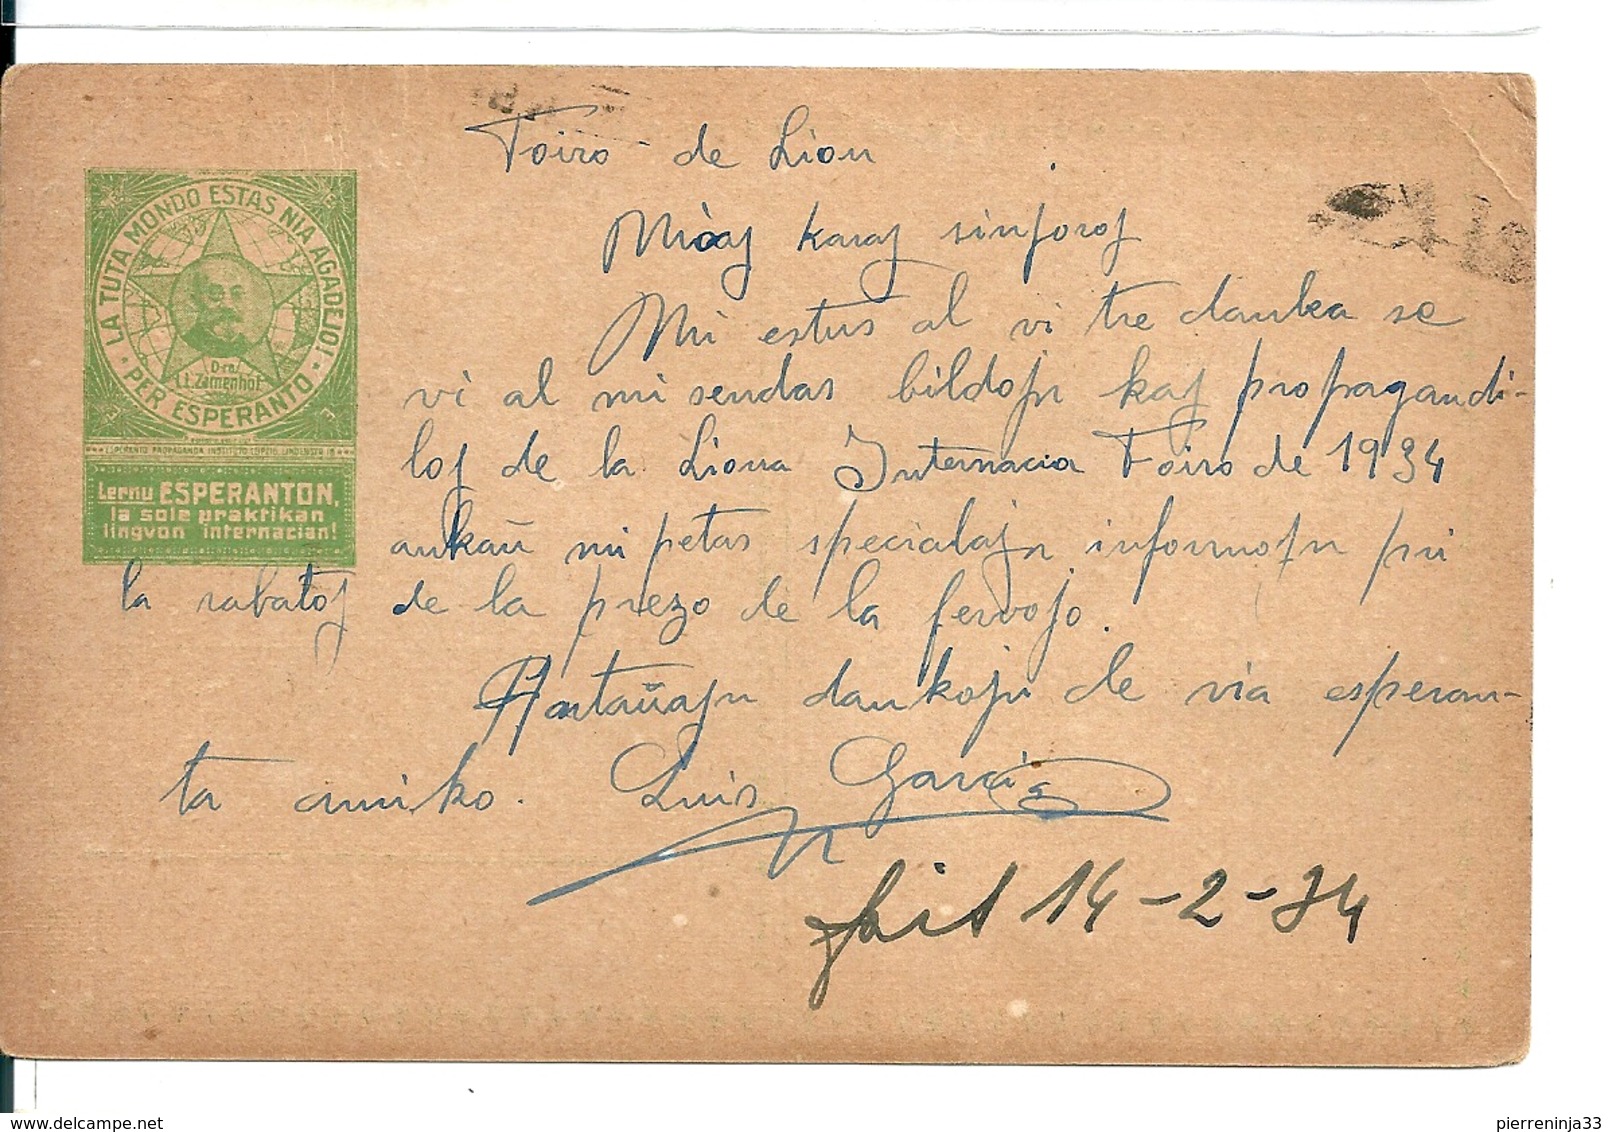 Foiro de Lion
Miaj karaj sinjoroj
Mi estus al vi tre danka se
vi al mi sendas bildojn kaj propagandi-
loj de la Liona Internacia Foiro de 1934
ankaŭ mi petas specialajn informojn pri
la rabatoj de la prezo de la fervojo.
Antaŭajn dankojn de via esperan-
ta amiko. Luis Garcia
fait 14-2-34
LA TUTA MONDO ESTAS NIA AGADEJO!
PER ESPERANTO
D-ro
L.L. Zamenhof
ESPERANTO PROPAGANDA INSTITUTO LEIPZIG
Lernu ESPERANTON,
la sole praktikan
lingvon internacian!
pierreninja33